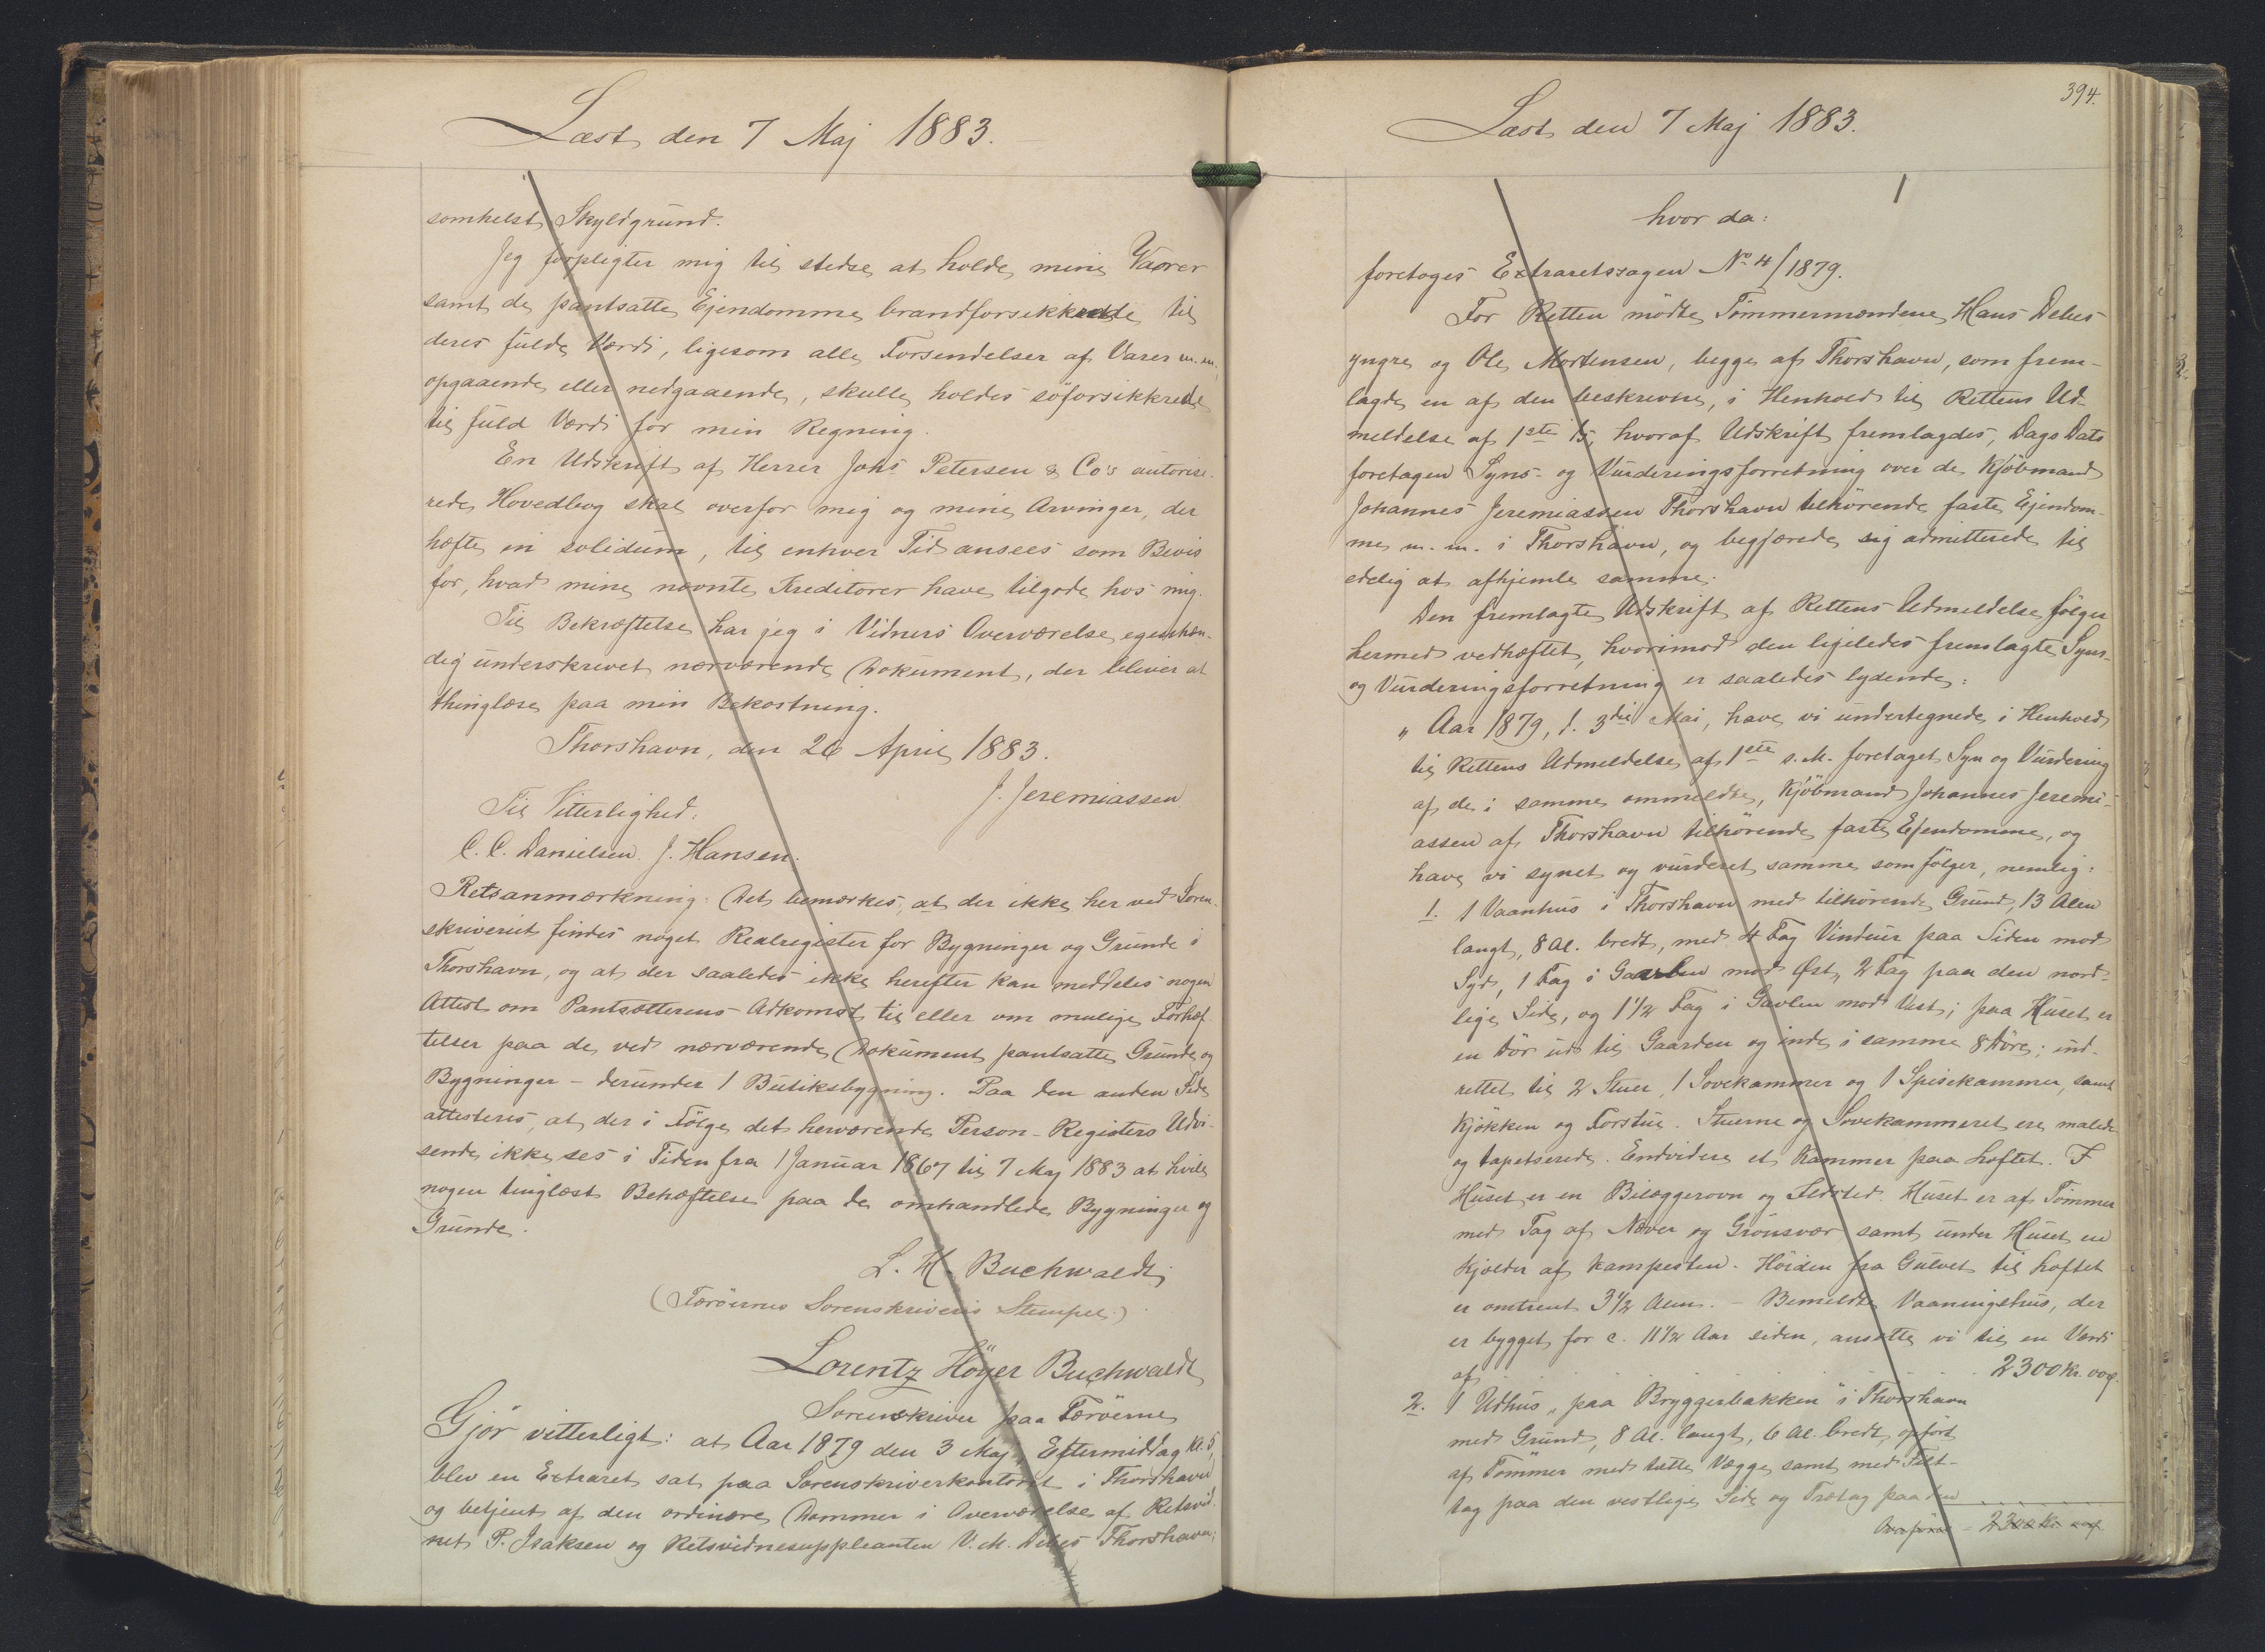 Læst den 7 Maj 1883.
somhelst Skyldgrund.
Jeg forpligter mig til stedse at holde mine Varer
samt de pantsatte Ejendomme brandforsikkrede til
deres fulde Værdi, ligesom alle Forsendelser af Varer m. m.,
opgaaende eller nedgaaende, skulle holdes søforsikkrede
til fuld Værdi for min Regning.
En Udskrift af Herrer Johs Petersen & Co's autorise-
rede Hovedbog skal overfor mig og mine Arvinger, der
hæfte in solidum, til enhver Tid ansees som Bevis
for, hvad mine nævnte Kreditorer have tilgode hos mig.
Til Bekræftelse har jeg i Vidners Overværelse egenhæn-
dig underskrevet nærværende Dokument, der bliver at
thinglæse paa min Bekostning.
Thorshavn, den 26 April 1883.
J. Jeremiassen
Til Vitterlighed:
C. C. Danielsen. J. Hansen.
Retsanmærkning: Det bemærkes, at der ikke her ved Soren-
skriveriet findes noget Realregister for Bygninger og Grunde i
Thorshavn, og at der saaledes ikke herefter kan meddeles nogen
Attest om Pantsætterens Adkomst til eller om mulige Forhæf-
telser paa de ved nærværende Dokument pantsatte Grunde og
Bygninger - derunder 1 Butiksbygning. Paa den anden Side
attesteres, at der i Følge det herværende Person-Registers Udvi-
sende ikke ses i Tiden fra 1 Januar 1867 til 7 Maj 1883 at hvile
nogen tinglæst Behæftelse paa de omhandlede Bygninger og
Grunde.
L. H. Buchwaldt
(Færøernes Sorenskriveris Stempel.)
Lorentz Höyer Buchwaldt
Sorenskriver paa Færøerne
Gjør vitterligt: at Aar 1879 den 3 Maj, Eftermiddag Kl. 5,
blev en Extraret sat paa Sorenskriverkontoret i Thorshavn
og betjent af den ordinære Dommer i Overværelse af Retsvid-
net P. Isaksen og Retsvidnesuppleanten V. M. Debes Thorshavn;
394.
Læst den 7 Maj 1883.
hvor da:
foretoges Extraretssagen No 4/1879.
For Retten mødte Tømmermændene Hans Debes
yngre og Ole Mortensen, begge af Thorshavn, som frem-
lagde en af den beskrevne, i Henhold til Rettens Ud-
meldelse af 1ste ds, hvoraf Udskrift fremlagdes, Dags Dato
foretagen Syns- og Vurderingsforretning over de Kjøbmand
Johannes Jeremiassen Thorshavn tilhørende faste Ejendom-
me m. m. i Thorshavn, og begjærede sig admitterede til
edelig at afhjemle samme.
Den fremlagte Udskrift af Rettens Udmeldelse følger
hermed vedhæftet, hvorimod den ligeledes fremlagte Syns-
og Vurderingsforretning er saaledes lydende:
„Aar 1879, d. 3die Mai, have vi undertegnede i Henhold
til Rettens Udmeldelse af 1ste s. M. foretaget Syn og Vurdering
af de i samme ommeldte, Kjøbmand Johannes Jeremi-
assen af Thorshavn tilhørende faste Ejendomme, og
have vi synet og vurderet samme som følger, nemlig:
1. 1 Vaanhus i Thorshavn med tilhørende Grund, 13 Alen
langt, 8 Al. bredt, med 4 Fag Vinduer paa Siden mod
Syd, 1 Fag i Gavlen mod Øst, 2 Fag paa den nord-
lige Side, og 1 1/2 Fag i Gavlen mod Vest; paa Huset er
en Dør ud til Gaarden og inde i samme 8 Døre; ind-
rettet til 2 Stuer, 1 Sovekammer og 1 Spisekammer, samt
Kjøkken og Forstue. Stuerne og Sovekammeret ere malede
og tapetserede. Endvidere et Kammer paa Loftet. I
Huset er en Bilæggerovn og Ildsted. Huset er af Tømmer
med Tag af Næver og Grønsvær samt under Huset en
Kjælder af Kampesten. Høiden fra Gulvet til Loftet
er omtrent 3 1/2 Alen. - Bemeldte Vaaningshus, der
er bygget for c. 11 1/2 Aar siden, ansætte vi til en Værdi
af 2300 Kr. 00 Ø.
2. 1 Udhus „paa Bryggerbakken" i Thorshavn
med Grund, 8 Al. langt, 6 Al. bredt, opført
af Tømmer med tætte Vægge samt med Filt-
tag paa den vestlige Side og Trætag paa den
Overføres - 2300 Kr. 00 Ø.